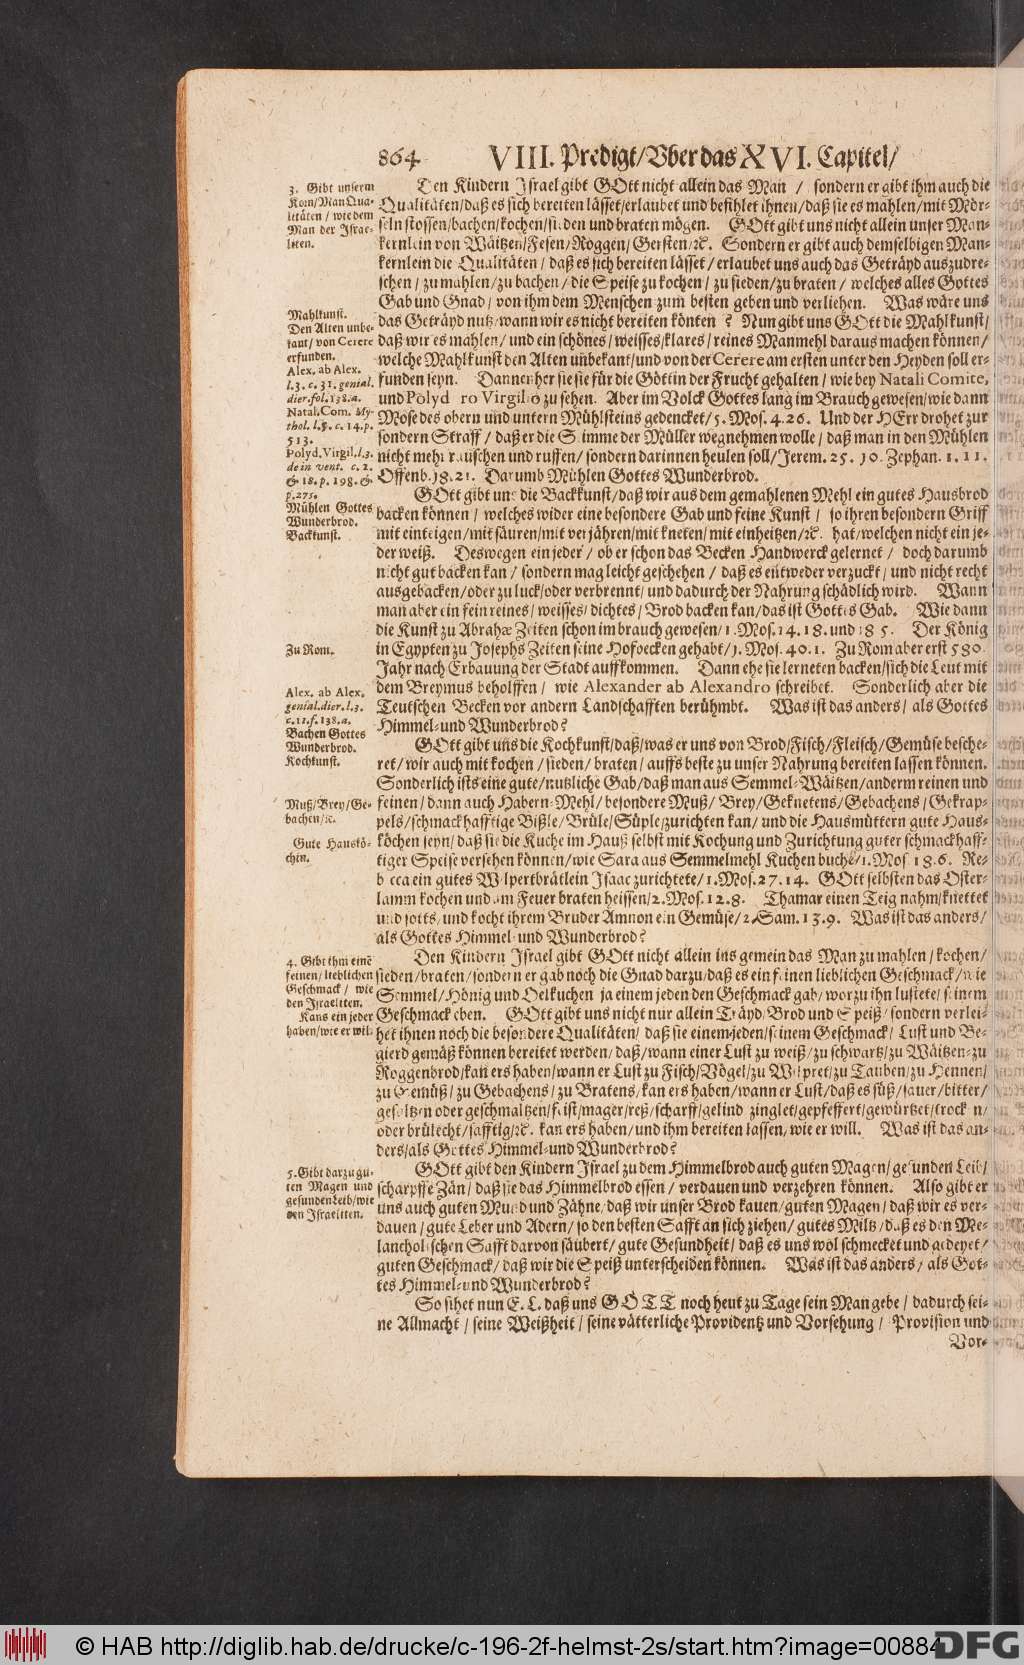 864 VIII. Predigt/Vber das XVI. Capitel/
3. Gibt unserm
Korn/Man Qua-
litäten / wie dem
Man der Israe-
liten.
Mahlkunst.
Den Alten unbe-
kant/von Cerere
erfunden.
Alex. ab Alex.
l.3. c. 31. genial.
dier. fol. 138. a.
Natal. Com. My-
thol. l.5. c. 14. p.
513.
Polyd. Virgil. l.3.
de in vent. c. 2.
& 18. p. 198. &
p. 275.
Mühlen Gottes
Wunderbrod.
Backkunst.
Zu Rom.
Alex. ab Alex.
genial. dier. l. 3.
c. 11. f. 138. a.
Bachen Gottes
Wunderbrod.
Kochkunst.
Muß/Brey/Ge-
bachen/ꝛc.
Gute Hauskö-
chin.
4. Gibt ihm einē
feinen/lieblichen
Geschmack / wie
den Israeliten.
Kans ein jeder
haben/wie er wil.
5. Gibt darzu gu-
ten Magen und
gesunden Leib/wie
den Israeliten.
Den Kindern Israel gibt GOtt nicht allein das Man / sondern er gibt ihm auch die
Qualitäten/daß es sich bereiten lässet/erlaubet und befihlet ihnen/daß sie es mahlen/mit Mör-
seln stossen/bachen/kochen/sieden und braten mögen. GOtt gibt uns nicht allein unser Man-
kernlein von Wäitzen/Fesen/Roggen/Gersten/ꝛc. Sondern er gibt auch demselbigen Man-
kernlein die Qualitäten / daß es sich bereiten lässet / erlaubet uns auch das Geträyd auszudre-
schen / zu mahlen/zu bachen / die Speise zu kochen / zu sieden/zu braten / welches alles Gottes
Gab und Gnad / von ihm dem Menschen zum besten geben und verliehen. Was wäre uns
das Geträyd nutz/wann wir es nicht bereiten könten ? Nun gibt uns GOtt die Mahlkunst/
daß wir es mahlen / und ein schönes / weisses/klares / reines Manmehl daraus machen können/
welche Mahlkunst den Alten unbekant/und von der Cerere am ersten unter den Heyden soll er-
funden seyn. Dannenher sie sie für die Göttin der Frucht gehalten / wie bey Natali Comite,
und Polydoro Virgilio zu sehen. Aber im Volck Gottes lang im Brauch gewesen/wie dann
Mose des obern und untern Mühlsteins gedencket/5. Mos. 4. 26. Und der HErr drohet zur
sondern Straff / daß er die Stimme der Müller wegnehmen wolle / daß man in den Mühlen
nicht mehr rauschen und ruffen/sondern darinnen heulen soll/Jerem. 25. 10. Zephan. 1. 11.
Offenb. 18. 21. Darumb Mühlen Gottes Wunderbrod.
GOtt gibt uns die Backkunst/daß wir aus dem gemahlenen Mehl ein gutes Hausbrod
backen können / welches wider eine besondere Gab und feine Kunst / so ihren besondern Griff
mit einteigen/mit säuren/mit verjähren/mit kneten/mit einheitzen/ꝛc. hat/welchen nicht ein je-
der weiß. Deswegen ein jeder / ob er schon das Becken Handwerck gelernet / doch darumb
nicht gut backen kan / sondern mag leicht geschehen / daß es entweder verzuckt / und nicht recht
ausgebacken/oder zu luck/oder verbrennt/und dadurch der Nahrung schädlich wird. Wann
man aber ein fein reines / weisses / dichtes / Brod backen kan/das ist Gottes Gab. Wie dann
die Kunst zu Abrahæ Zeiten schon im brauch gewesen/1. Mos. 14. 18. und 18 5. Der König
in Egypten zu Josephs Zeiten seine Hofbecken gehabt/1. Mos. 40. 1. Zu Rom aber erst 580.
Jahr nach Erbauung der Stadt auffkommen. Dann ehe sie lerneten backen/sich die Leut mit
dem Breymus beholffen / wie Alexander ab Alexandro schreibet. Sonderlich aber die
Teutschen Becken vor andern Landschafften berühmbt. Was ist das anders / als Gottes
Himmel-und Wunderbrod?
GOtt gibt uns die Kochkunst/daß/was er uns von Brod/Fisch/Fleisch/Gemüse besche-
ret/wir auch mit kochen / sieden / braten / auffs beste zu unser Nahrung bereiten lassen können.
Sonderlich ists eine gute/nutzliche Gab/daß man aus Semmel-Wäitzen/anderm reinen und
feinen / dann auch Habern-Mehl/ besondere Muß/ Brey/Geknetens/Gebachens/Gekrap-
pels/schmackhafftige Bißle/Brüle/Süple/zurichten kan/ und die Hausmüttern gute Haus-
köchen seyn/ daß sie die Kuche im Hauß selbst mit Kochung und Zurichtung guter schmackhaff-
tiger Speise versehen können/wie Sara aus Semmelmehl Kuchen buche/1. Mos 18. 6. Re-
becca ein gutes Wilpertbrätlein Isaac zurichtete/1. Mos. 27. 14. GOtt selbsten das Oster-
lamm kochen und am Feuer braten heissen/2. Mos. 12. 8. Thamar einen Teig nahm/knettet
und sotts/und kocht ihrem Bruder Amnon ein Gemüse/2. Sam. 13. 9. Was ist das anders/
als Gottes Himmel-und Wunderbrod?
Den Kindern Israel gibt GOtt nicht allein ins gemein das Man zu mahlen/kochen/
sieden/braten/sondern er gab noch die Gnad darzu/daß es ein feinen lieblichen Geschmack/wie
Semmel/Hönig und Oelkuchen ja einem jeden den Geschmack gab/worzu ihn lustete/seinem
Geschmack eben. GOtt gibt uns nicht nur allein Träyd/Brod und Speiß/sondern verlei-
het ihnen noch die besondere Qualitäten/ daß sie einem jeden/seinem Geschmack/ Lust und Be-
gierd gemäß können bereitet werden/daß/wann einer Lust zu weiß/zu schwartz/zu Wäitzen-zu
Roggenbrod/kan ers haben/wann er Lust zu Fisch/Vögel/zu Wilpret/zu Tauben/zu Hennen/
zu Gemüß/zu Gebachens/zu Bratens/kan ers haben/wann er Lust/daß es süß/sauer/bitter/
gesaltzen oder geschmaltzen/feist/mager/reß/scharff/gelind zinglet/gepfeffert/gewürtzet/trocken/
oder brülecht/safftig/ꝛc. kan ers haben/und ihm bereiten lassen/wie er will. Was ist das an-
ders/als Gottes Himmel-und Wunderbrod?
GOtt gibt den Kindern Israel zu dem Himmelbrod auch guten Magen/gesunden Leib/
scharpffe Zän/daß sie das Himmelbrod essen / verdauen und verzehren können. Also gibt er
uns auch guten Mund und Zähne/daß wir unser Brod kauen/guten Magen/daß wir es ver-
dauen/gute Leber und Adern/so den besten Safft an sich ziehen/gutes Miltz/daß es den Me-
lancholischen Safft darvon säubert/gute Gesundheit/daß es uns wol schmecket und gedeyet/
guten Geschmack/daß wir die Speiß unterscheiden können. Was ist das anders/als Got-
tes Himmel-und Wunderbrod?
So sihet nun E. L. daß uns GOTT noch heut zu Tage sein Man gebe / dadurch sei-
ne Allmacht / seine Weißheit / seine vätterliche Providentz und Vorsehung / Provision und
Vor-
© HAB http://diglib.hab.de/drucke/c-196-2f-helmst-2s/start.htm?image=00884
DFG